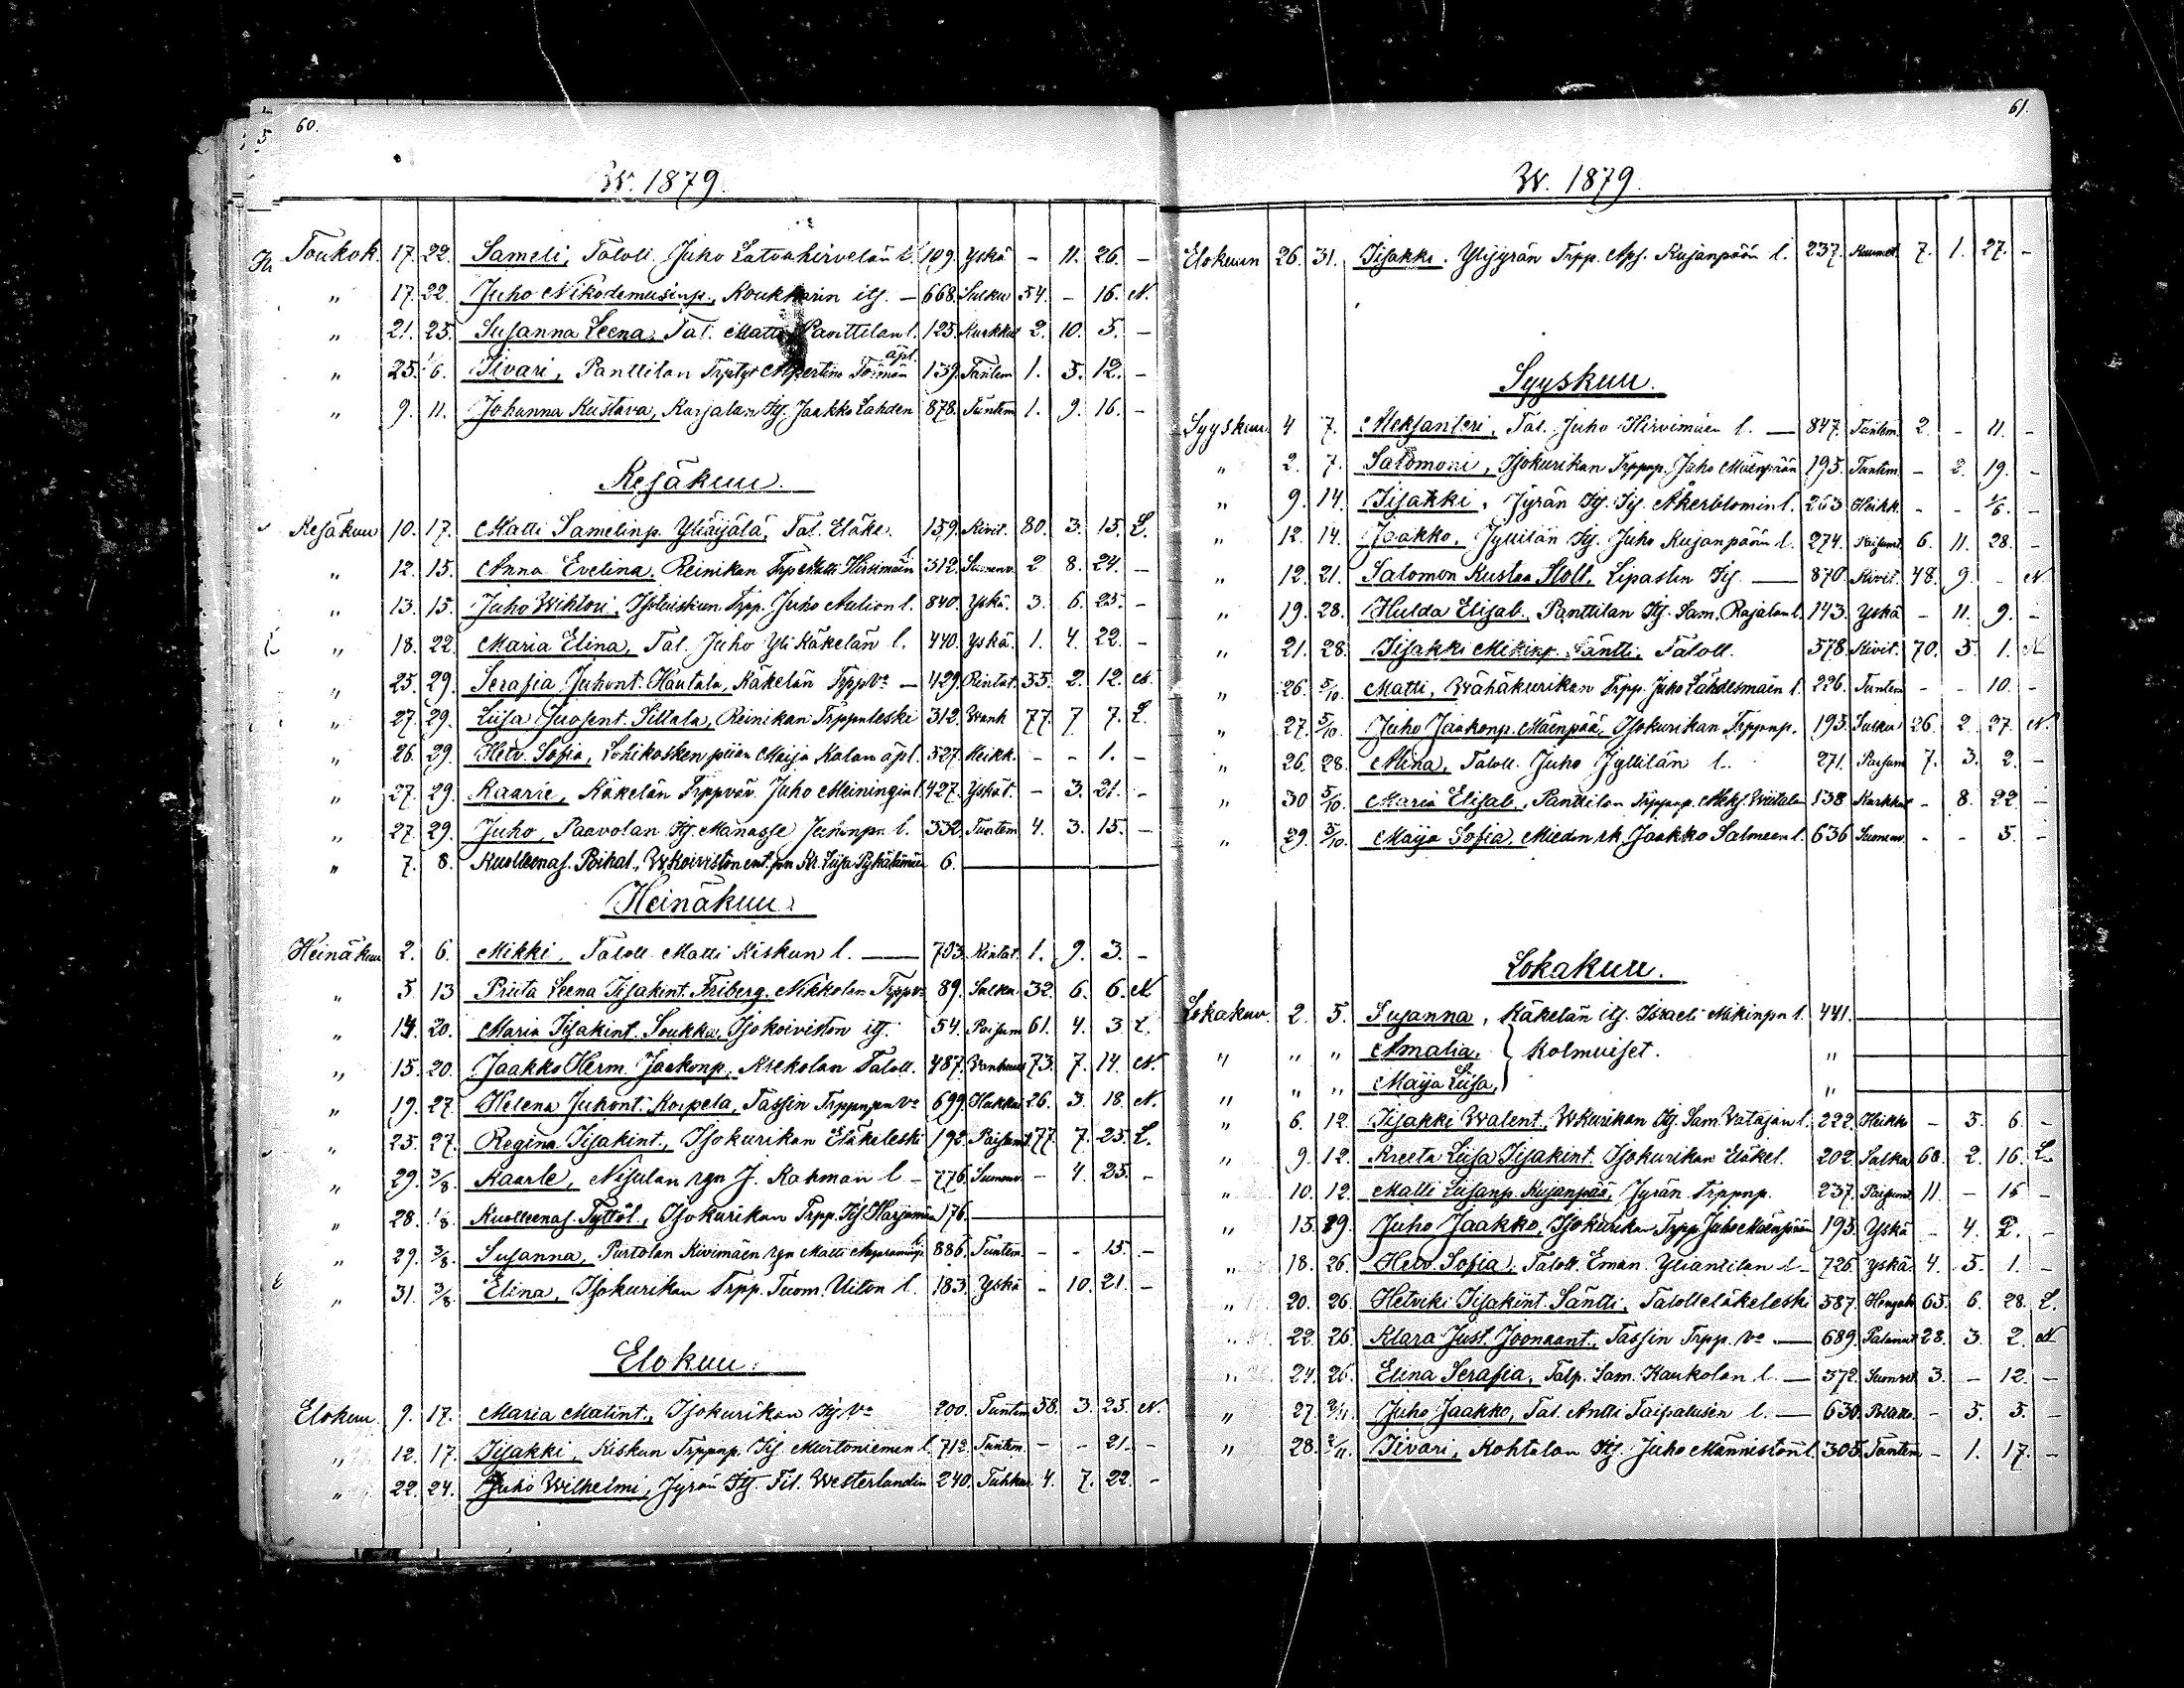 60.
W. 1879.
Toukok. 17. 22. Sameli, Taloll. Juho Latvahirvelän l. 109. Yskä - 11. 26. -
" 17. 22. Juho Nikodemusinp., Koukkarin itj. - 668. Sulku 54. - 16. N.
" 21. 25. Susanna Leena, Tal. Matti Panttilan l. 125. Kurkkut 2. 10. 5. -
" 25. 1/6. Iivari, Panttilan Trptyt Albertina äpl. 139. Tuntem 1. 5. 12. -
" 9. 11. Johanna Kustava, Karjalan Itj. Jaakko Lahden 878. Tuntem 1. 9. 16. -
Kesäkuu.
Kesäkuu 10. 17. Matti Samelinp. Yliäijälä, Tal. Eläke. 159. Kivit. 80. 3. 15. L.
" 12. 15. Anna Evelina. Reinikan Trp Matti Hirsimäen l. 312. Suonenv. 2 8. 24. -
" 13. 15. Juho Wihtori, Isoluiskun Trpp. Juho Aution l. 840. Yskä. 3. 6. 25. -
" 18. 22. Maria Elina, Tal. Juho Yli Käkelän l. 440. Yskä. 1. 4. 22. -
" 25. 29. Serafia Juhont. Hautala, Käkelän Trppvo - 429. Rintat. 35. 2. 12. N.
" 27. 29. Liisa Juosent. Sillala, Reinikan Trppnleski 312. Wanh 77. 7 7. L.
" 26. 29. Hedv. Sofia, Lohikosken piian Maija Kalan äpl. 527. Heikk. - - 1. -
" 27. 29. Kaarle, Käkelän Trppväv. Juho Meiningin l. 427. Yskät. - 3. 21. -
" 27. 29. Juho, Paavolan Itj. Manasse Juhonpn l. 332. Tuntem 4. 3. 15. -
" 7. 8. Kuolleenas. Poikal., W.Koiviston ent. pn Kr. Liisa Pykälämäen 6.
Heinäkuu.
Heinäkuu 2. 6. Mikki, Taloll. Matti Kiskun l. 703. Rintat. 1. 9. 3. -
" 5 13 Priita Leena Iisakint. Friberg. Nikkolan Trppvo 89. Sulku. 32. 6. 6. N.
" 14. 20. Maria Iisakint. Soukka, Isokoiviston itj. 54. Paisum 61. 4. 3. L.
" 15. 20. Jaakko Herm. Jaakonp., Krekolan Taloll. 487. Wanhuus 73. 7. 14. N.
" 19. 27. Helena Juhont. Korpela, Tassin Trppnpn vo 699. Hukkui 26. 3. 18. N.
" 25. 27. Regina Iisakint., Isokurikan Eläkeleski 192. Paisumt 77. 7. 25. L.
" 29. 3/8. Kaarle, Nisulan rgn J. Kahman l - 776. Suonenv. - 4. 25. -
" 28. 1/8. Kuolleenas. Tyttöl., Isokurikan Trpp. Iis. Harjumäen 176.
" 29. 3/8. Susanna, Purtolan Kivimäen rgn Matti l. 886. Tuntem. - - 15. -
" 31. 3/8. Elina, Isokurikan Trpp. Tuom. Uiton l. 183. Yskä - 10. 21. -
Elokuu.
Elokuu. 9. 17. Maria Matint., Isokurikan Itj. Vo 200. Tuntem 58. 3. 25. N.
" 12. 17. Iisakki, Kiskun Trppnp. Iis. Murtoniemen l. 712. Tuntem. - - 21. -
" 22. 24. Juho Wilhelmi, Jyrän Itj. Fil. Westerlundin 240. Tuhkur. 4. 7. 22. -
61.
W. 1879.
Elokuun 26. 31. Iisakki. Ylijyrän Trpp. Aps. Kujanpään l. 237. Kuumet. 7. 1. 27. -
Syyskuu.
Syyskuu. 4 7. Aleksanteri, Tal. Juho Hirvimäen l. 847. Tuntem. 2. - 11. -
" 2. 7. Salomoni, Isokurikan Trppnp. Juho Mäenpään 195. Tuntem. - 2. 19. -
" 9. 14. Iisakki, Jyrän Itj. Iij. Åkerblomin l. 253 Heikk. - - 1/6. -
" 12. 14. Jaakko, Jyllilän Itj. Juho Kujanpään l. 274. Paisumt. 6. 11. 28. -
" 12. 21. Salomon Kustaa Stoll, Lipastin Itj. 870. Kivit. 48. 9. - N
" 19. 28. Hulda Elisab., Panttilan Itj. Sam. Rajalan l. 143. Yskä - 11. 9. -
" 21. 28. Iisakki Mikinp. Säntti, Taloll. 578. Kivit. 70. 5. 1. N
" 26. 5/10. Matti, Wähäkurikan Trpp. Juho Lähdesmäen l. 226. Tuntem - - 10. -
" 27. 5/10. Juho Jaakonp. Mäenpää, Isokurikan Trppnp. 195. Sulku 26. 2. 27. N.
" 26. 28. Alina, Taloll. Juho Jyllilän l. 271. Paisum 7. 3. 2. -
" 30 5/10. Maria Elisab., Panttilan Trppnp. Aleks. Wiitala 138 Kurkkut - 8. 22 -
" 29. 5/10. Maija Sofia, Miedon rk. Jaakko Salmeen l. 636 Suonenv. - - 5. -
Lokakuu.
Lokakuu. 2. 5. Susanna, Käkelän itj. Israeli Mikinpn l. 441.
" " " Amalia, } Kolmuiset. "
" " " Maija Liisa, "
" 6. 12. Iisakki Walent., W.Kurikan Itj. Sam. Watajan l. 222. Heikko - 5. 6. -
" 9. 12. Kreeta Liisa Iisakint. Isokurikan Eläkel. 202. Sulku 68. 2. 16. L.
" 10. 12. Matti Liisanp. Kujanpää, Jyrän Trppnp. 237. Paisumt. 11. - 15 -
" 15. 19. Juho Jaakko, Isokurikan Trpp. Juho Mäenpään 195. Yskä - 4. 2. -
" 18. 26. Hedv. Sofia, Taloll. Eman. Yliantilan l - 726. Yskä. 4. 5. 1. -
" 20. 26. Hetviki Iisakint. Säntti, Talolleläkeleski 587. Hengah 65. 6. 28. L.
" 22. 26. Klara Just. Joonaant., Tassin Trpp. vo - 689. Palanut 28. 3. 2. N
" 24. 26. Elina Serafia, Talp. Sam. Kaukolan l. - 572. Suonvet 3. - 12. -
" 27. 2/11. Juho Jaakko, Tal. Antti Taipalusen l. - 630. Polakko. - 5. 5. -
" 28. 2/11. Iivari, Kohtalan Itj. Juho Männistön l. 305. Tuntem - 1. 17. -